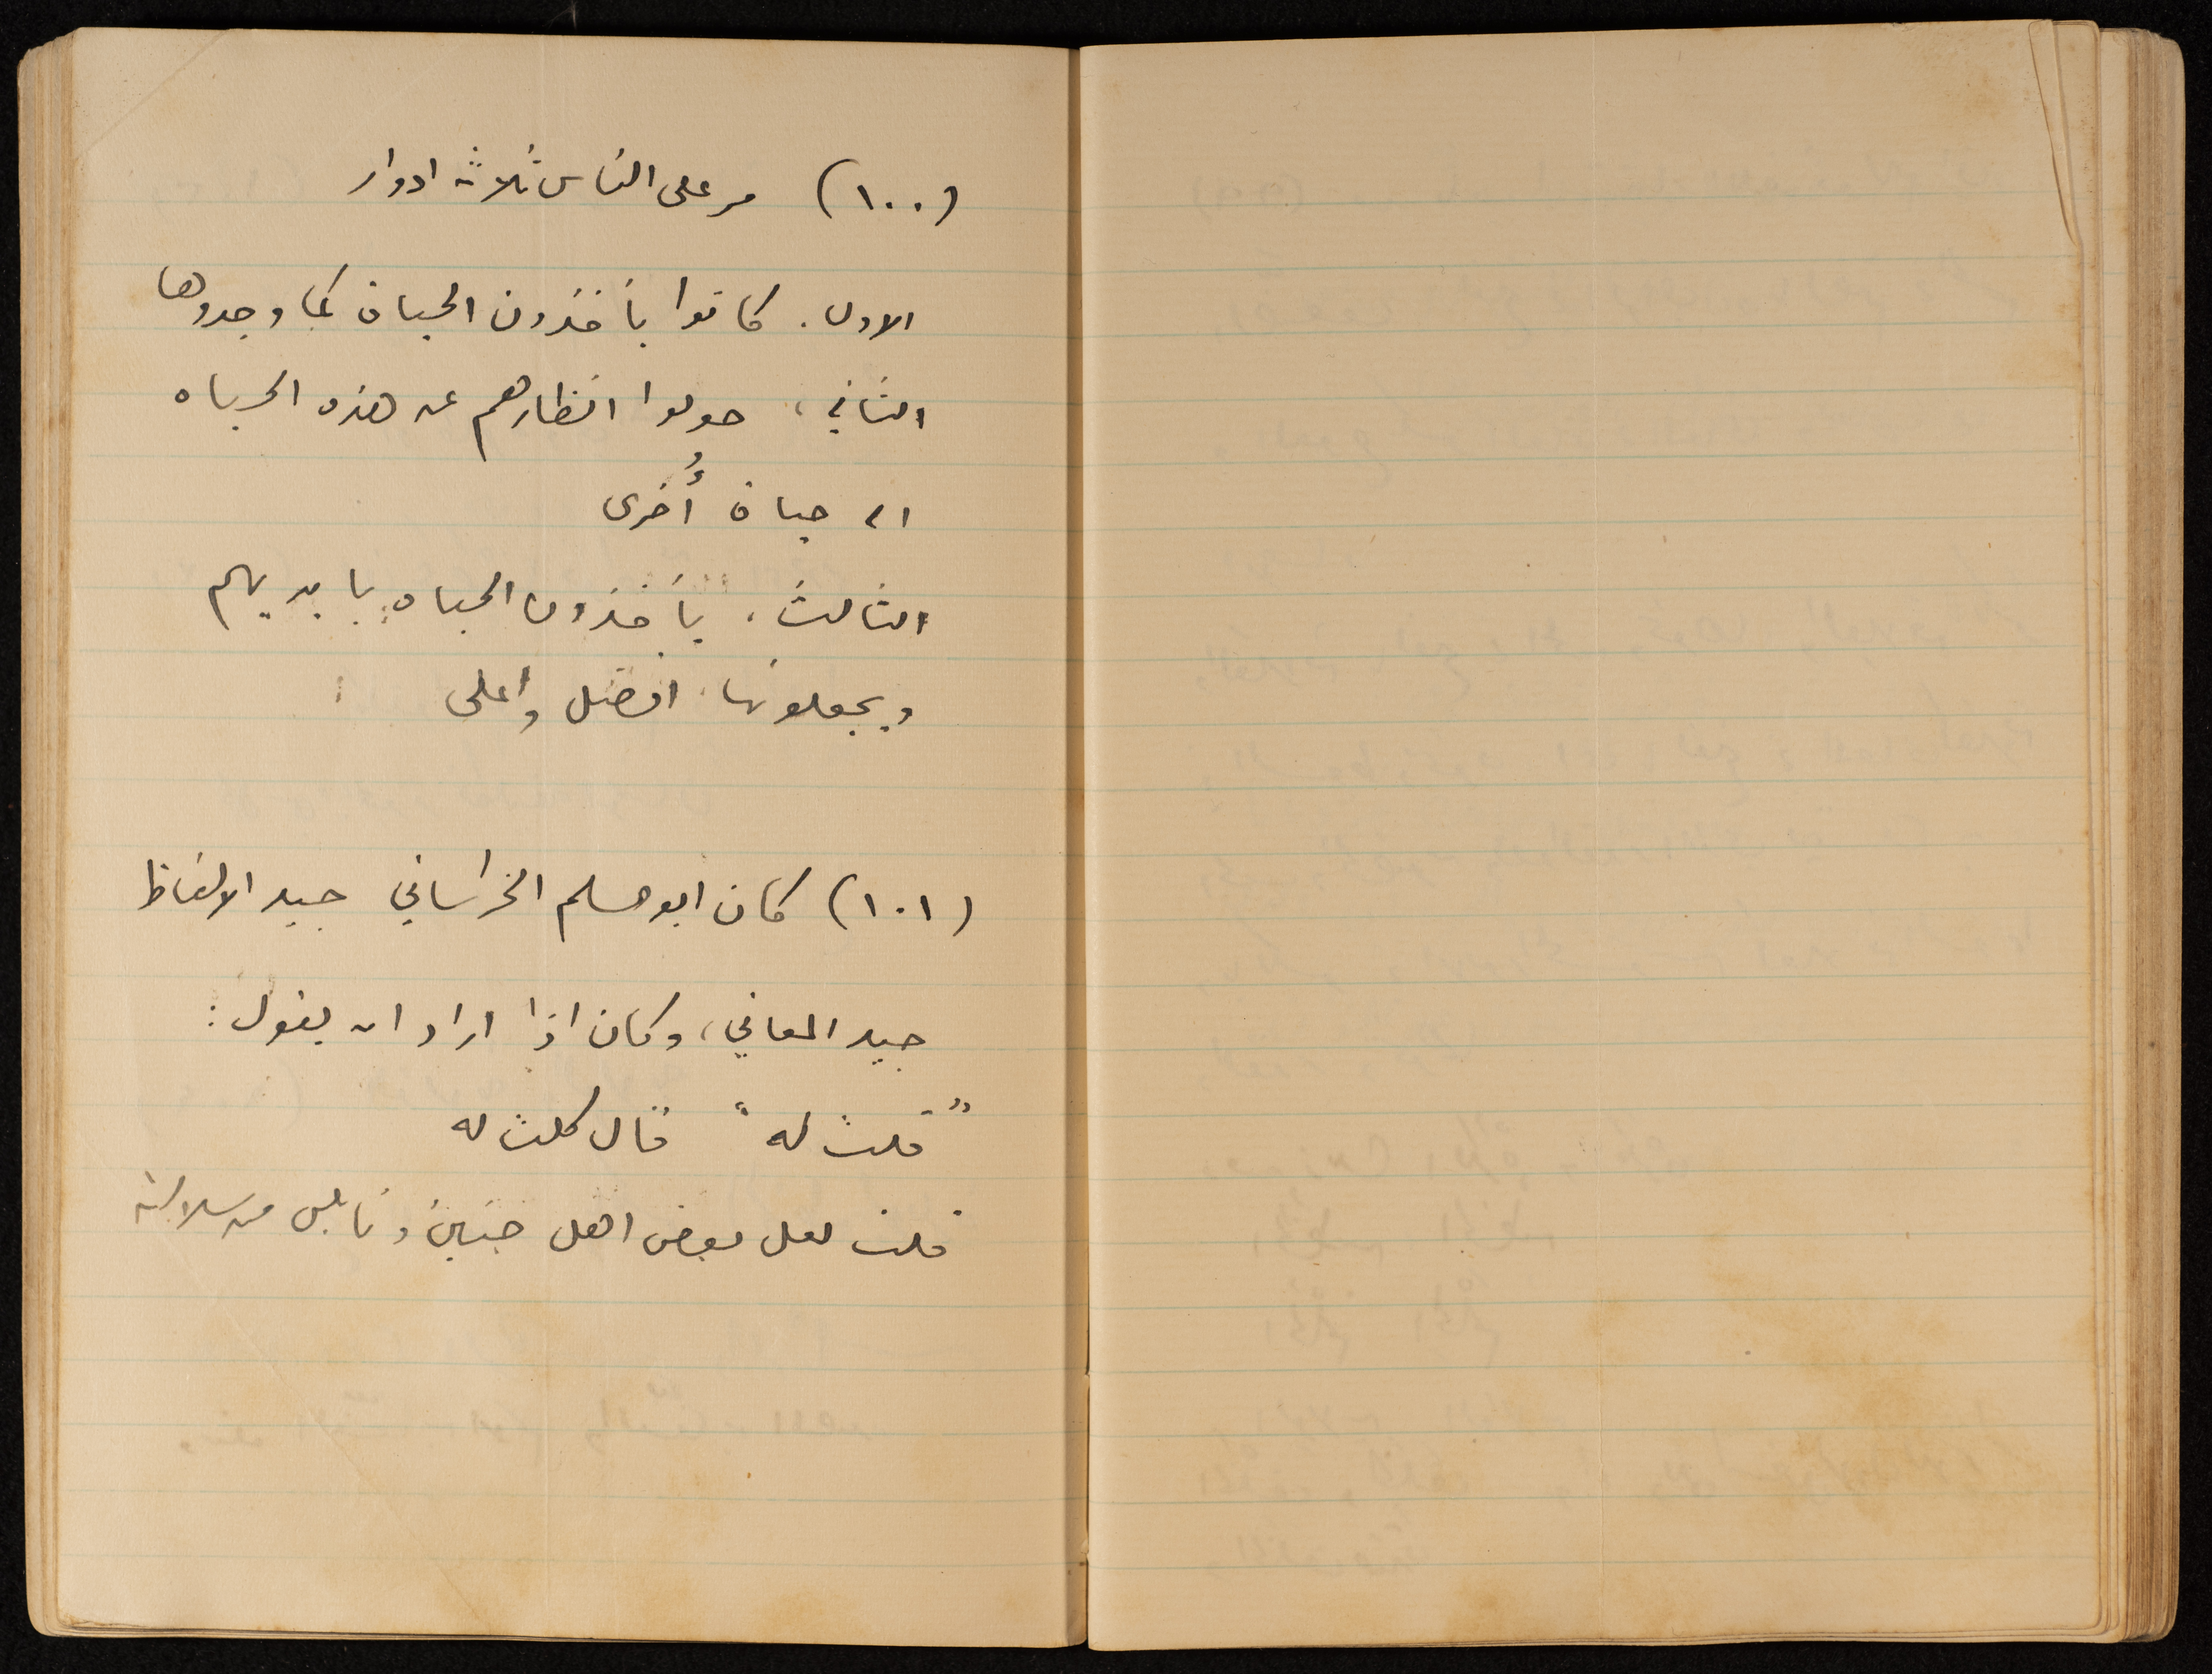 (١٠٠) مر على الناس ثلاثة ادوار
الاول. كانوا يأخذون الحياة كما وجدوها
الثاني، حولوا انظارهم عن هذه الحياه
الى حياة أُخرى
الثالث، يأخذون الحياه بايديهم
ويجعلونها افضل واعلى
(١٠١) كان ابو مسلم الخراساني جيد الالفاظ
جيد المعاني، وكان اذا اراد ان يقول:
"قلت له" قال كلت له
قلت لعل بعض اهل جنين ونابلس من سلالته